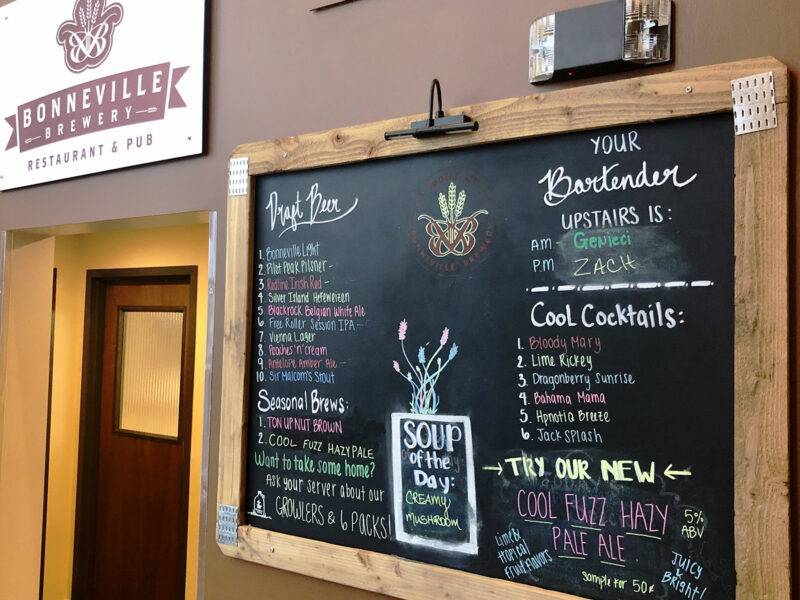 BONNEVILLE
BREWERY
RESTAURANT & PUB
Draft Beer
1. Bonneville Light
2. Pilot Peak Pilsner -
3. Redline Irish Red -
4. Silver Island Hefeweizen
5. Blackrock Belgian White Ale
6. Free Roller Session IPA -
7. Vienna Lager
8. Peaches 'n' cream
9. Antelope Amber Ale -
10. Sir Malcom's Stout
Seasonal Brews:
1. TON UP NUT BROWN
2. COOL FUZZ HAZY PALE
Want to take some home?
Ask your server about our
GROWLERS & 6 PACKS!
BONNEVILLE BREWERY
SOUP
of the
Day:
CREAMY
MUSHROOM
YOUR
Bartender
UPSTAIRS IS:
A.M - Genicci
P.M ZACH
COOL COCKTAILS:
1. Bloody Mary
2. Lime Rickey
3. Dragonberry Sunrise
4. Bahama Mama
5. Hpnotiq Breeze
6. Jack Splash
→ TRY OUR NEW ←
COOL FUZZ HAZY
PALE ALE
5%
ABV
Lime &
tropical
Fruit flavors
JUICY
&
Bright!
Sample for 50¢